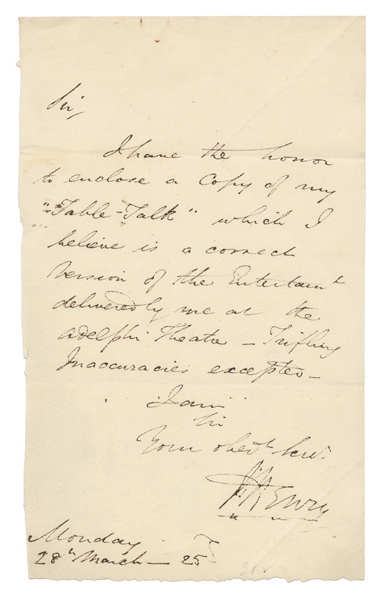 Sir,
I have the honor
to enclose a Copy of my
"Table-Talk" which I
believe is a correct
Version of the Entertaint
delivered by me at the
Adelphi Theatre — Trifling
Inaccuracies excepted —
I am
Sir
Your obedt Servt.
Henry
Monday
28th March — 25